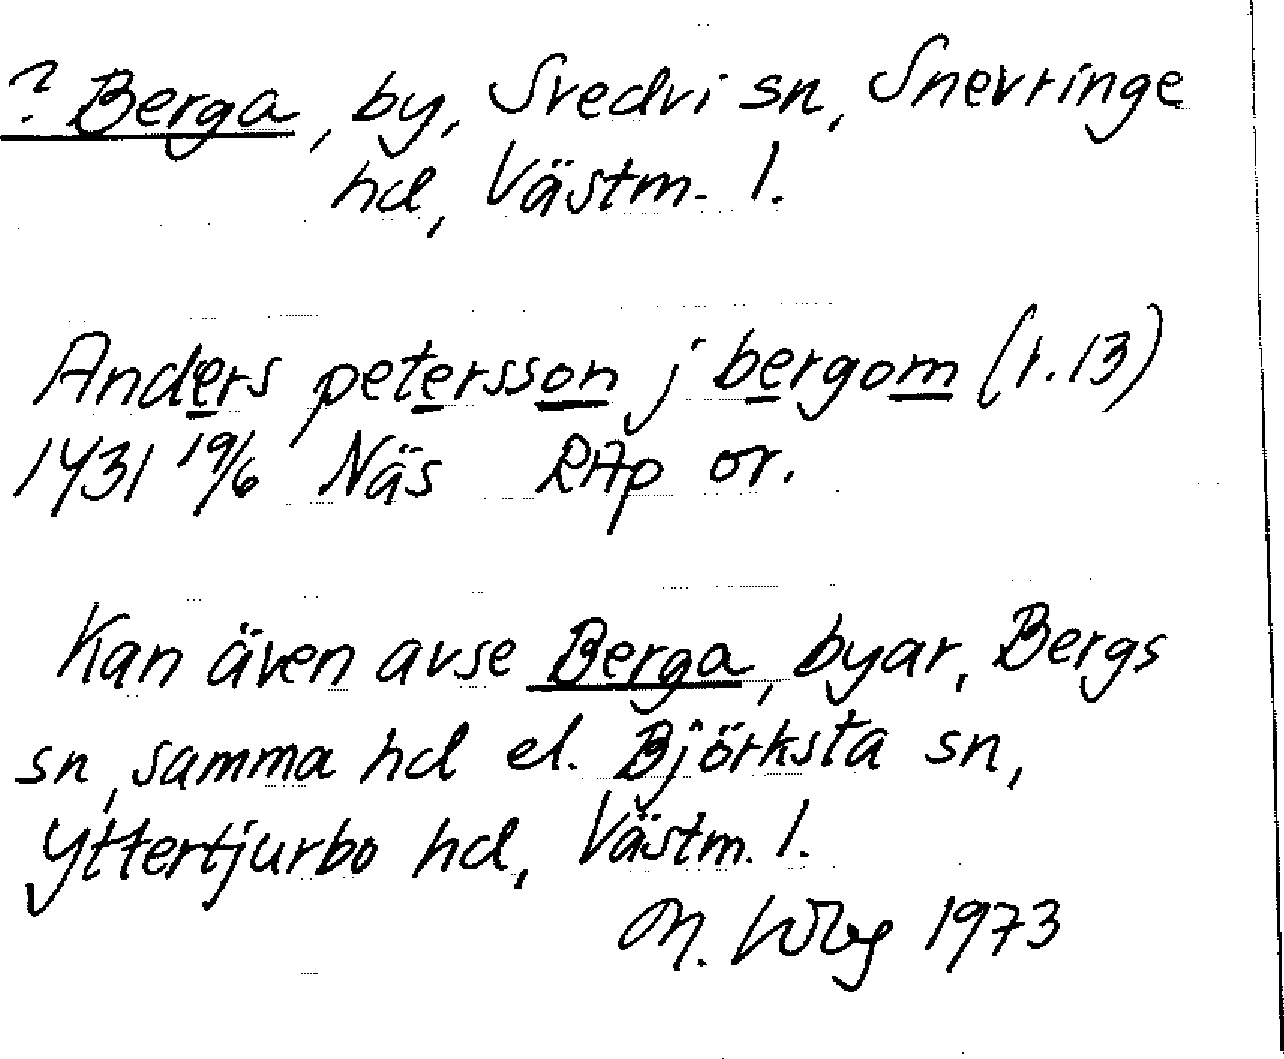 ? Berga, by, Svedvi sn, Snevringe
hd, Västm. l.
Anders petersson j bergom (r. 13)
1431 19/6 Näs RAp or.
Kan även avse Berga, byar, Bergs
sn, samma hd el. Björksta sn,
Yttertjurbo hd, Västm. l.
M. 1973